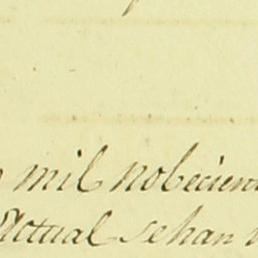 mil nobecien
Actual se han